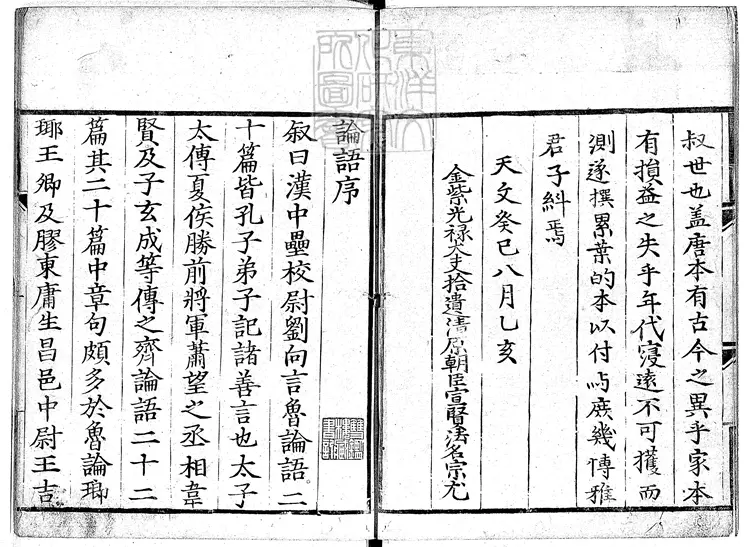 叔世也盖唐本有古今之異乎家本
有損益之失乎年代寖遠不可獲而
測遂撰累葉的本以付与庻幾博雅
君子糾焉
天文癸巳八月乙亥
金紫光禄大夫拾遺清原朝臣宣賢法名宗尤
論語序
叙曰漢中壘校尉劉向言魯論語二
十篇皆孔子弟子記諸善言也太子
太傅夏侯勝前將軍蕭望之丞相韋
賢及子玄成等傳之齊論語二十二
篇其二十篇中章句頗多於魯論瑯
瑘王卿及膠東庸生昌邑中尉王吉